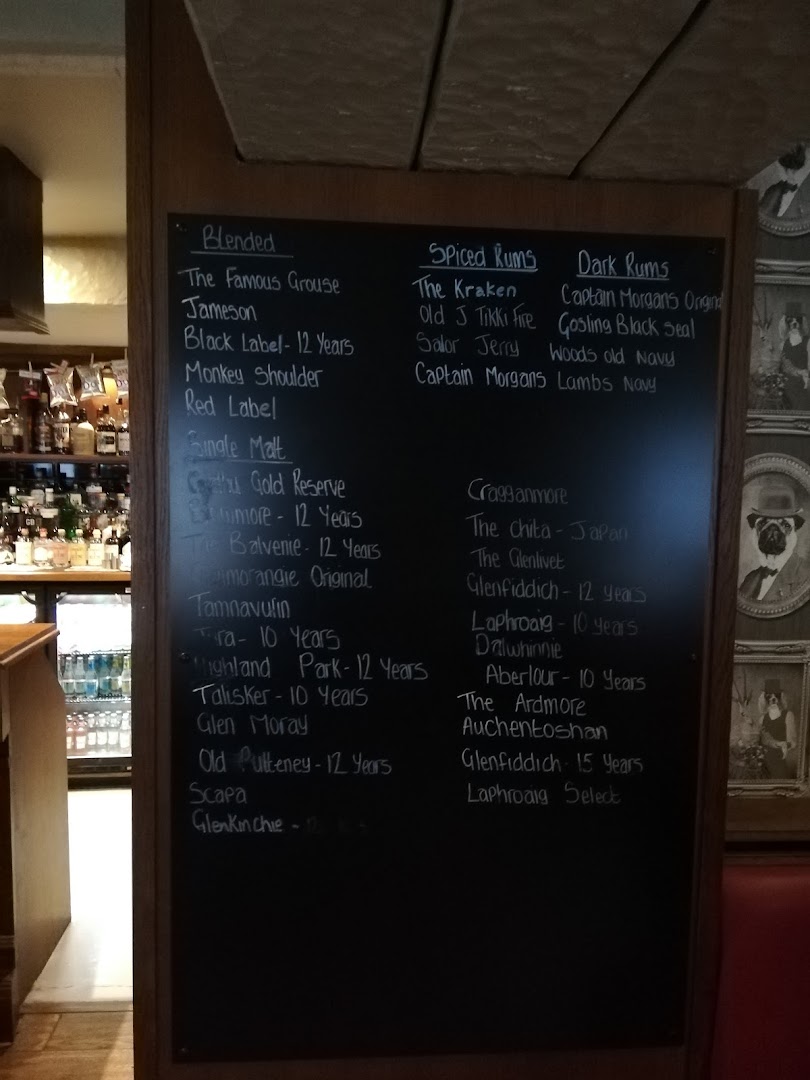 Blended
The Famous Grouse
Jameson
Black Label - 12 Years
Monkey Shoulder
Red Label
Single Malt
Gold Reserve
- 12 Years
Balvenie - 12 Years
Original
Tamnavulin
- 10 Years
Highland Park - 12 Years
Talisker - 10 Years
Glen Moray
Old Pulteney - 12 Years
Scapa
Glenkinchie -
Spiced Rums
The Kraken
Old J Tikki Fire
Salor Jerry
Captain Morgans
Dark Rums
Captain Morgans Original
Gosling Black Seal
Woods old Navy
Lambs Navy
Cragganmore
The Chita - Japan
The Glenlivet
Glenfiddich - 12 years
Laphroaig - 10 years
Dalwhinnie
Aberlour - 10 Years
The Ardmore
Auchentoshan
Glenfiddich - 15 years
Laphroaig Select